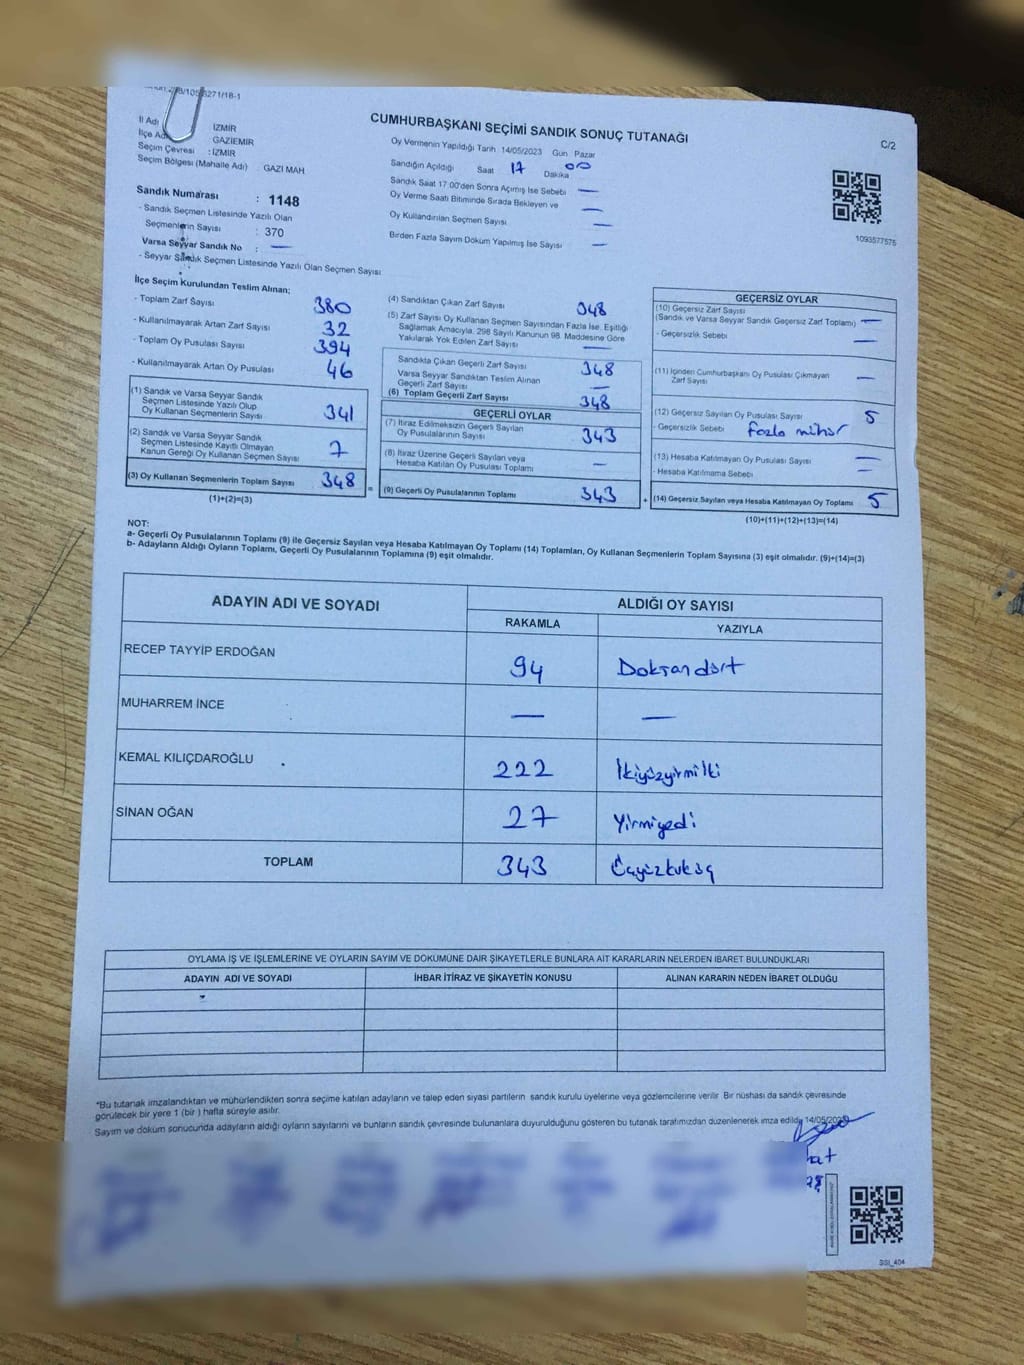 CUMHURBAŞKANI SEÇİMİ SANDIK SONUÇ TUTANAĞI
C/2
İl Adı İZMİR
İlçe Adı GAZİEMİR
Seçim Çevresi : İZMİR
Seçim Bölgesi (Mahalle Adı) GAZİ MAH
Sandık Numarası : 1148
- Sandık Seçmen Listesinde Yazılı Olan
Seçmenlerin Sayısı : 370
Varsa Seyyar Sandık No : —
- Seyyar Sandık Seçmen Listesinde Yazılı Olan Seçmen Sayısı
Oy Vermenin Yapıldığı Tarih 14/05/2023 Gün Pazar
Sandığın Açıldığı Saat 17 Dakika 00
Sandık Saat 17:00'den Sonra Açımış İse Sebebi —
Oy Verme Saati Bitiminde Sırada Bekleyen ve
Oy Kullandırılan Seçmen Sayısı —
Birden Fazla Sayım Döküm Yapılmış İse Sayısı —
1093577575
İlçe Seçim Kurulundan Teslim Alınan;
- Toplam Zarf Sayısı 380
- Kullanılmayarak Artan Zarf Sayısı 32
- Toplam Oy Pusulası Sayısı 394
- Kullanılmayarak Artan Oy Pusulası 46
(1) Sandık ve Varsa Seyyar Sandık
Seçmen Listesinde Yazılı Olup
Oy Kullanan Seçmenlerin Sayısı 341
(2) Sandık ve Varsa Seyyar Sandık
Seçmen Listesinde Kayıtlı Olmayan
Kanun Gereği Oy Kullanan Seçmen Sayısı 7
(3) Oy Kullanan Seçmenlerin Toplam Sayısı 348
(1)+(2)=(3)
(4) Sandıktan Çıkan Zarf Sayısı 348
(5) Zarf Sayısı Oy Kullanan Seçmen Sayısından Fazla İse, Eşitliği
Sağlamak Amacıyla, 298 Sayılı Kanunun 98. Maddesine Göre
Yakılarak Yok Edilen Zarf Sayısı —
Sandıkta Çıkan Geçerli Zarf Sayısı 348
Varsa Seyyar Sandıktan Teslim Alınan
Geçerli Zarf Sayısı —
(6) Toplam Geçerli Zarf Sayısı 348
GEÇERLİ OYLAR
(7) İtiraz Edilmeksizin Geçerli Sayılan
Oy Pusulalarının Sayısı 343
(8) İtiraz Üzerine Geçerli Sayılan veya
Hesaba Katılan Oy Pusulası Toplamı —
= (9) Geçerli Oy Pusulalarının Toplamı 343
GEÇERSİZ OYLAR
(10) Geçersiz Zarf Sayısı
(Sandık ve Varsa Seyyar Sandık Geçersiz Zarf Toplamı) —
- Geçersizlik Sebebi —
(11) İçinden Cumhurbaşkanı Oy Pusulası Çıkmayan
Zarf Sayısı —
(12) Geçersiz Sayılan Oy Pusulası Sayısı 5
- Geçersizlik Sebebi fazla mühür
(13) Hesaba Katılmayan Oy Pusulası Sayısı —
- Hesaba Katılmama Sebebi —
+ (14) Geçersiz Sayılan veya Hesaba Katılmayan Oy Toplamı 5
(10)+(11)+(12)+(13)=(14)
NOT:
a- Geçerli Oy Pusulalarının Toplamı (9) ile Geçersiz Sayılan veya Hesaba Katılmayan Oy Toplamı (14) Toplamları, Oy Kullanan Seçmenlerin Toplam Sayısına (3) eşit olmalıdır. (9)+(14)=(3)
b- Adayların Aldığı Oyların Toplamı, Geçerli Oy Pusulalarının Toplamına (9) eşit olmalıdır.
ADAYIN ADI VE SOYADI ALDIĞI OY SAYISI
RAKAMLA YAZIYLA
RECEP TAYYİP ERDOĞAN 94 Doksandört
MUHARREM İNCE — —
KEMAL KILIÇDAROĞLU 222 İkiyüzyirmiİki
SİNAN OĞAN 27 Yirmiyedi
TOPLAM 343
OYLAMA İŞ VE İŞLEMLERİNE VE OYLARIN SAYIM VE DÖKÜMÜNE DAİR ŞİKAYETLERLE BUNLARA AİT KARARLARIN NELERDEN İBARET BULUNDUKLARI
ADAYIN ADI VE SOYADI İHBAR İTİRAZ VE ŞİKAYETİN KONUSU ALINAN KARARIN NEDEN İBARET OLDUĞU
*Bu tutanak imzalandıktan ve mühürlendikten sonra seçime katılan adayların ve talep eden siyasi partilerin sandık kurulu üyelerine veya gözlemcilerine verilir. Bir nüshası da sandık çevresinde
görülecek bir yere 1 (bir ) hafta süreyle asılır.
Sayım ve döküm sonucunda adayların aldığı oyların sayılarını ve bunların sandık çevresinde bulunanlara duyurulduğunu gösteren bu tutanak tarafımızdan düzenlenerek imza edildi. 14/05/2023
SSI_404